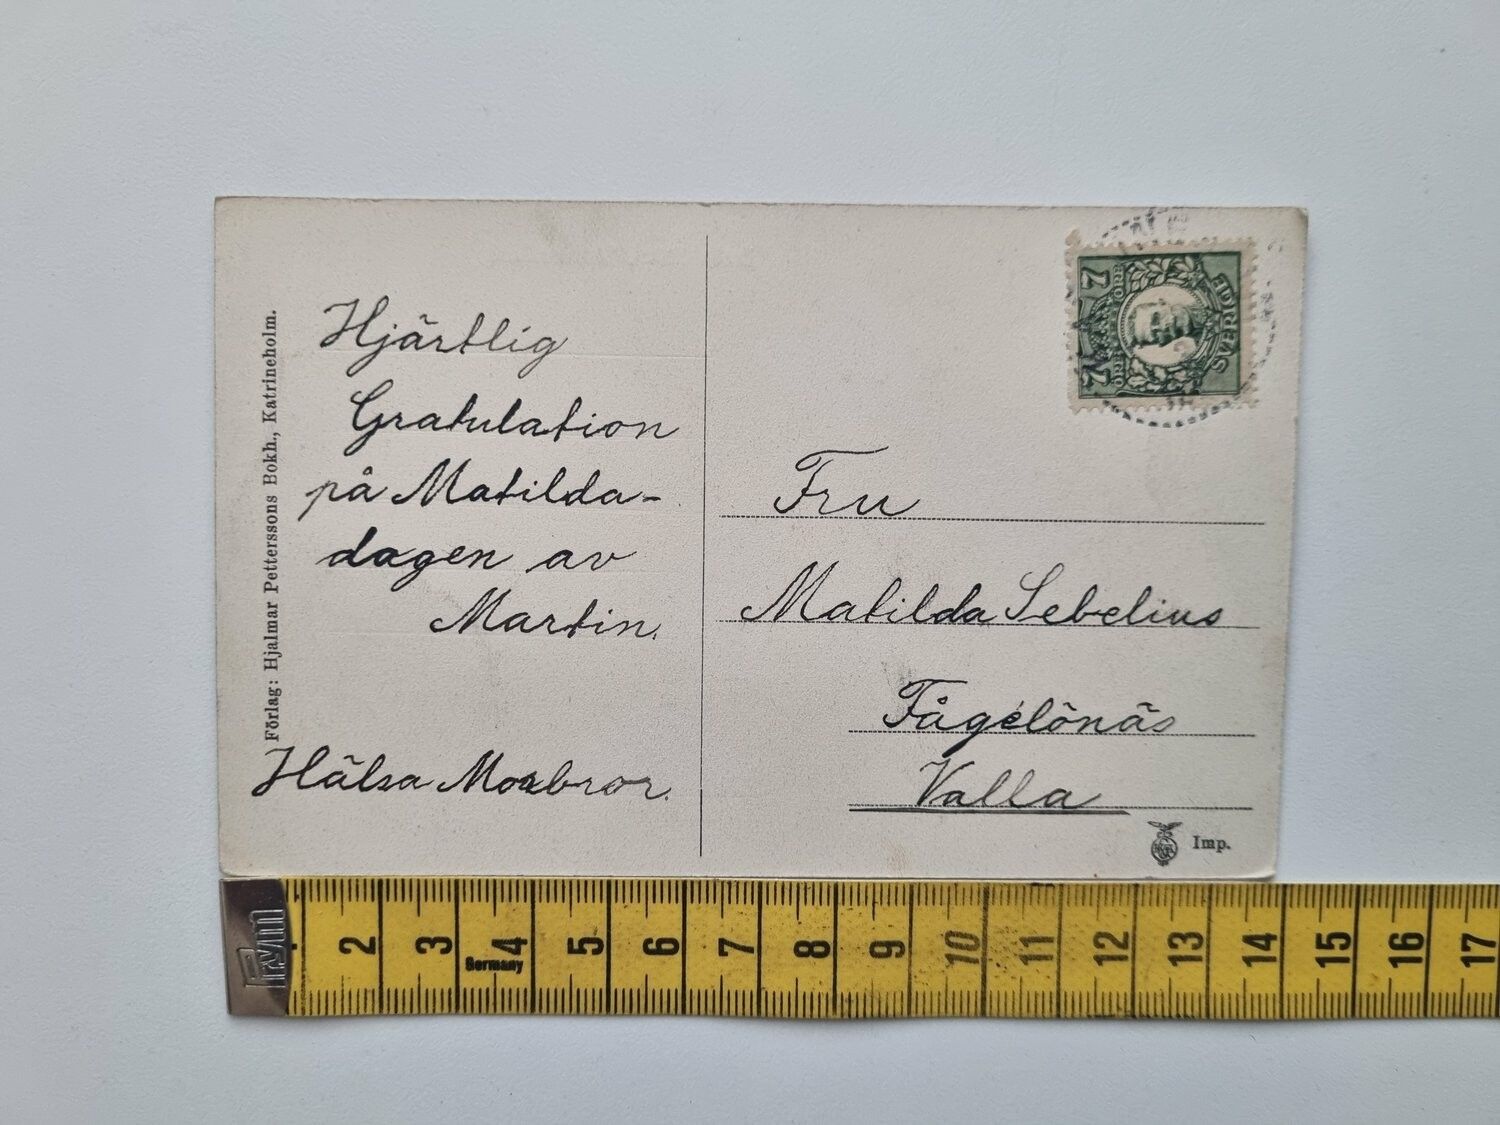 Förlag: Hjalmar Petterssons Bokh., Katrineholm.
Hjärtlig
Gratulation
på Matilda-
dagen av
Martin.
Hälsa Morbror.
7 ÖRE
7 ÖRE
SVERIGE
Fru
Matilda Sebelius
Fågelönäs
Valla
Imp.
Prym
2 3 4 5 6 7 8 9 10 11 12 13 14 15 16 17
Germany